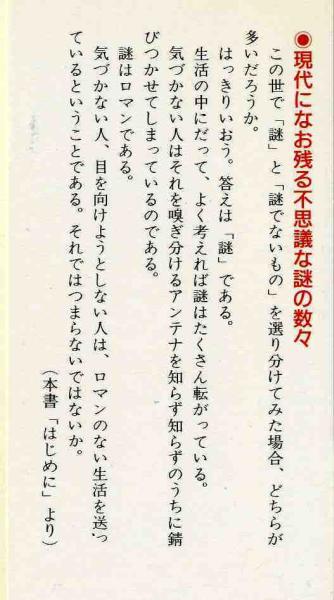 ◉現代になお残る不思議な謎の数々
この世で「謎」と「謎でないもの」を選り分けてみた場合、どちらが
多いだろうか。
はっきりいおう。答えは「謎」である。
生活の中にだって、よく考えれば謎はたくさん転がっている。
気づかない人はそれを嗅ぎ分けるアンテナを知らず知らずのうちに錆
びつかせてしまっているのである。
謎はロマンである。
気づかない人、目を向けようとしない人は、ロマンのない生活を送っ
ているということである。それではつまらないではないか。
(本書「はじめに」より)